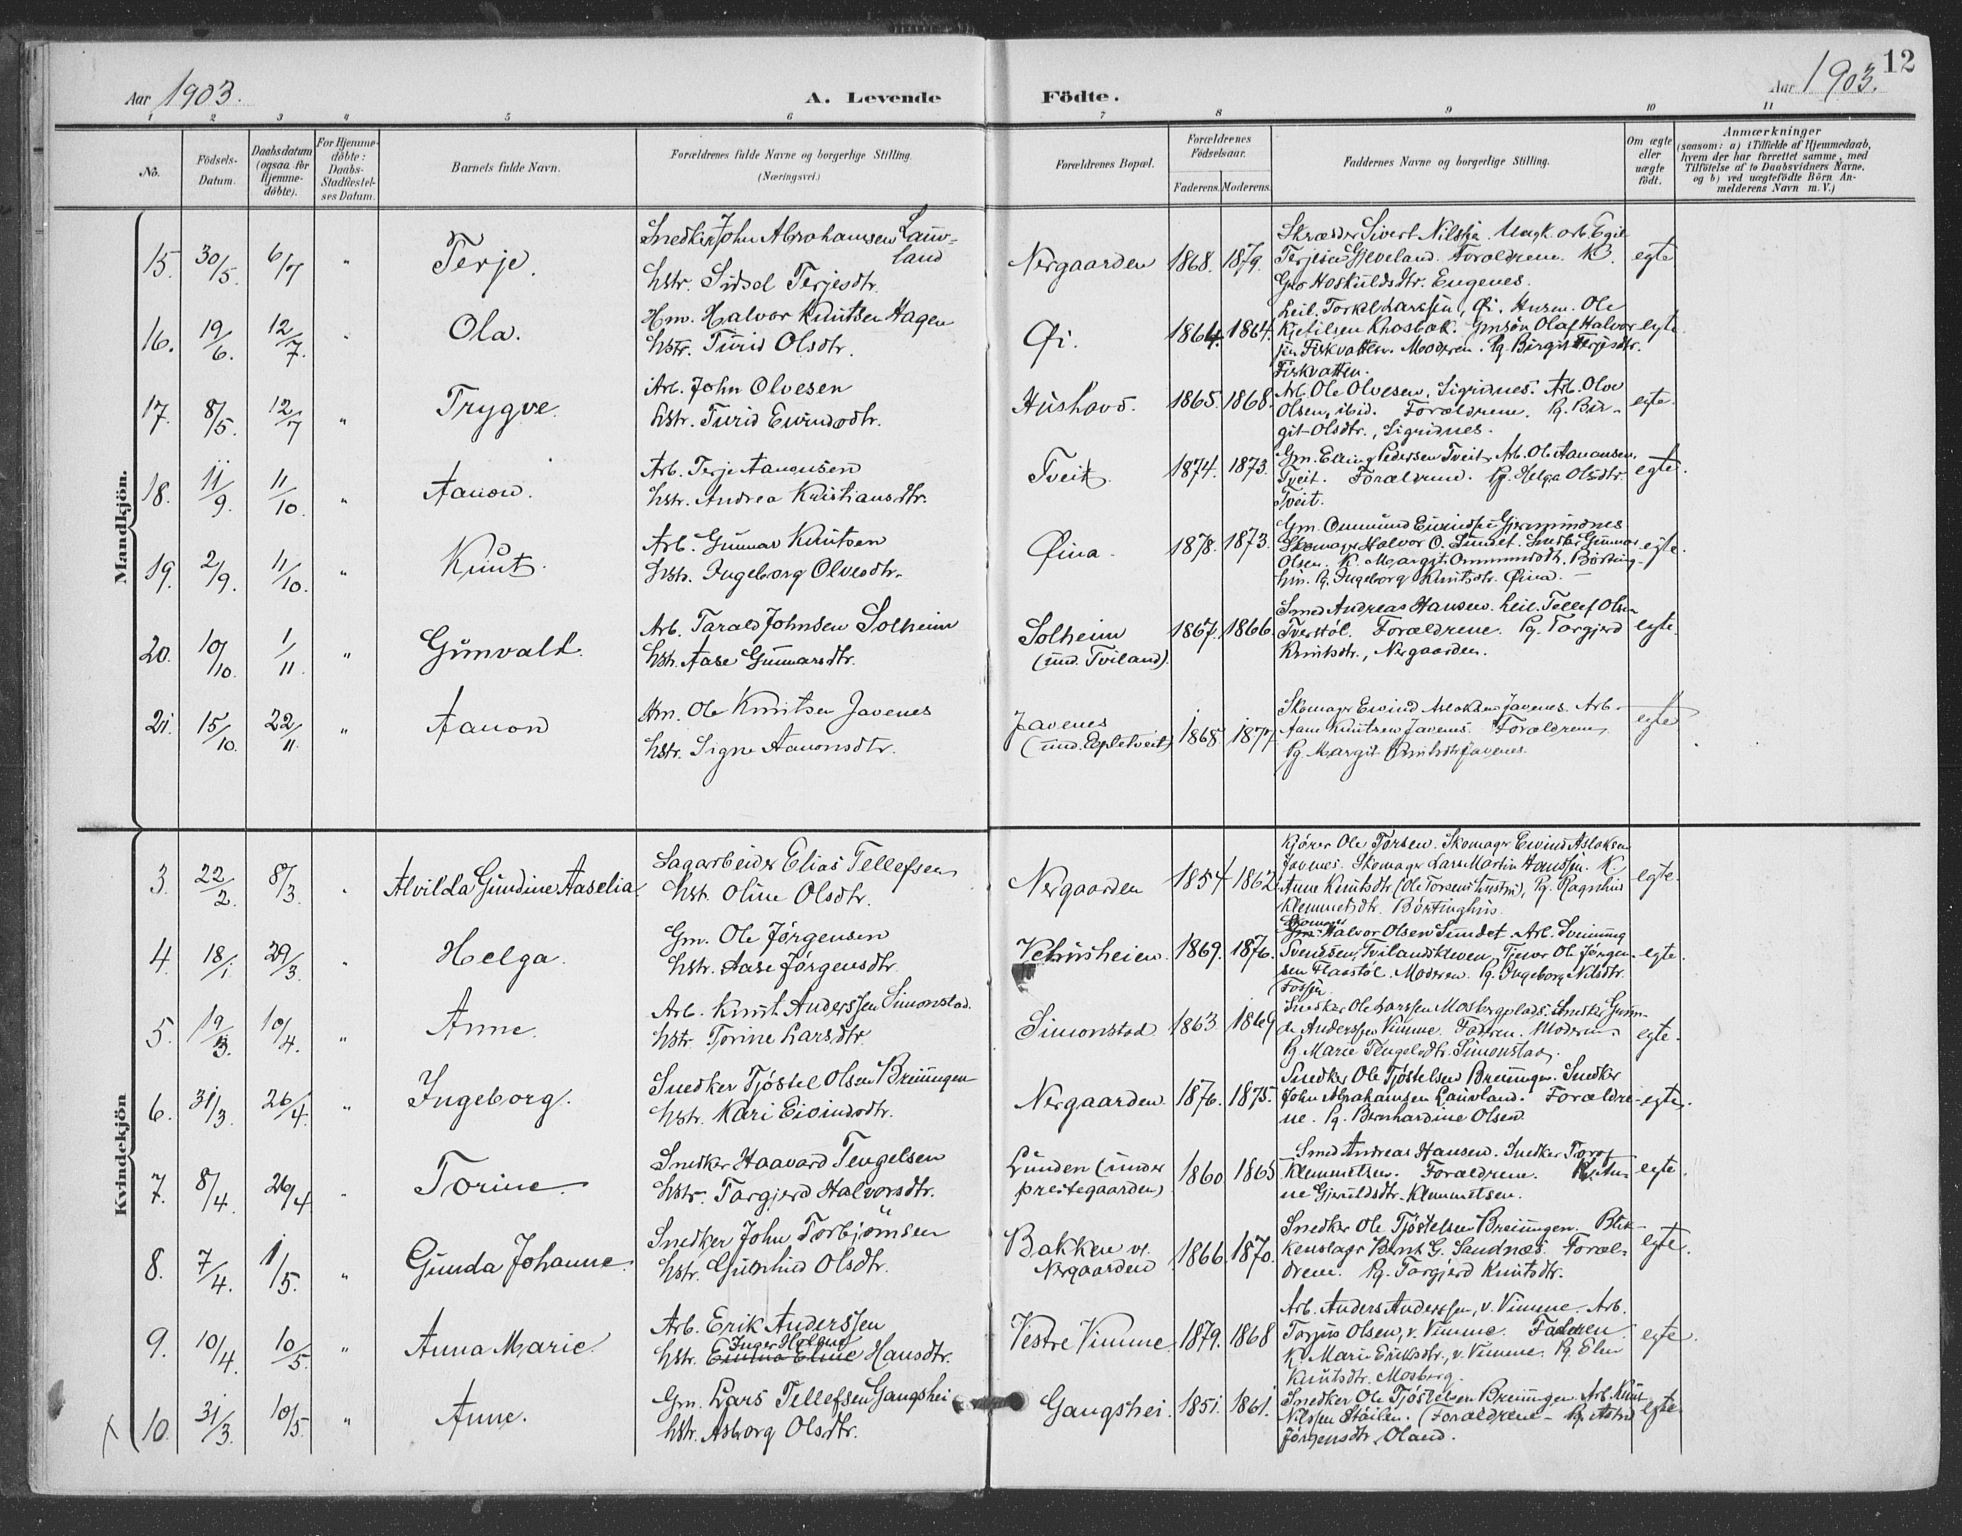 Aar 1903. A. Levende Födte. Aar 1903. 12
1 2 3 4 5 6 7 8 9 10 11
No.
Födsels-
Datum.
Daabsdatum
(ogsaa for
Hjemme-
döbte).
For Hjemme-
döbte:
Daabs-
Stadfæstel-
ses Datum.
Barnets fulde Navn.
Forældrenes fulde Navne og borgerlige Stilling.
(Næringsvei.)
Forældrenes Bopæl.
Forældrenes
Födselsaar.
Faderens. Moderens.
Faddernes Navne og borgerlige Stilling.
Om ægte
eller
uægte
födt.
Anmærkninger
(saasom: a) i Tilfælde af Hjemmedaab,
hvem der har forrettet samme, med
Tilföielse af to Daabsvidners Navne,
og b) ved uægtefödte Börn An-
melderens Navn m. V.)
Mandkjön.
15. 30/5. 6/7 " Terje.
Snedker John Abrahamsen Lauv-
land
hstr. Sidsel Terjesdtr.
Nergaarden 1868. 1879.
Skræder Sivert Nilssen. Ungk. arb. Egil
Terjesen Gjeveland. Forældrene. K.
Gro Hoskuldsdtr. Eugenes.
egte
16. 19/6. 12/7. " Ola.
Hm. Halvor Knutsen Hagen
hstr. Turid Olsdtr.
Øi. 1864. 1864.
Leil. Torkel Larssen, Øi. Husm. Ole
Kjetilsen Krosbæk. Gmsøn Olaf Halvor
sen Fiskvatten. Moderen. Pg. Birgit Terjesdtr.
Fiskvatten.
egte.
17. 8/5. 12/7 " Trygve.
Arb. John Olvesen
hstr. Turid Eivindsdtr.
Hushovd. 1865. 1868.
Arb. Ole Olvesen, Sigridnes. Arb. Olve
Olsen, ibid. Forældrene. Pg. Bir-
git Olsdtr., Sigridnes.
egte.
18. 11/9. 11/10. " Aanon.
Arb. Terje Aanonsen
hstr. Andrea Kristiansdtr.
Tveit. 1874. 1873.
Gm. Elling Pedersen Tveit. Arb. Ole Aanonsen,
Tveit. Forældrene. Pg. Helga Olsdtr.
Tveit.
egte.
19. 2/9. 11/10. " Knut.
Arb. Gunnar Knutsen
hstr. Ingeborg Olvesdtr.
Øina. 1878. 1873.
Gm. Ommund Eivindsen Gjermundnes.
Skomager Halvor O. Sundet. Snedker Gunnar
Olsen. K. Margit Ommundsdtr. Børting-
hus. Pg. Ingeborg Knutsdtr. Øina.
egte.
20. 10/10. 1/11. " Gunvald.
Arb. Tarald Johnsen Solheim
hstr. Aase Gunnarsdtr.
Solheim
(und. Tviland). 1867. 1866.
Smed Andreas Hansen. Leil. Tellef Olsen
Tverstøl. Forældrene. Pg. Torgjerd
Knutsdtr., Nergaarden.
egte.
21. 15/10. 22/11. " Aanon
Hm. Ole Knutsen Javenes
hstr. Signe Aanonsdtr.
Javenes
(und. Epletveit) 1868 1877.
Skomager Eivind Aslaksen Javenes. Arb.
Aane Knutsen Javenes. Forældrene,
Pg. Margit Knutsdtr Javenes.
egte
Kvindekjön
3. 22/2. 8/3. " Alvilda Gundine Aaselia.
Sagarbeider Elias Tellefsen
hstr. Oline Olsdtr.
Nergaarden 1854 1862.
Kjører Ole Torsen. Skomager Eivind Aslaksen
Javenes. Skomager Lars Martin Hanssen. K.
Anne Knutsdtr (Ole Torsens hustru), Pg. Ragnhild
Klemmetsdtr. Børtinghus.
egte.
4. 18/1. 29/3. " Helga.
Gm. Ole Jørgensen
hstr. Aase Jørgensdtr.
Vehusheien. 1869. 1876.
Skomager
Gm. Halvor Olsen Sundet. Arb. Sveinung
Svendsen, Tvilandskleven, Tjener Ole Jørgen-
sen Flaastøl. Moderen. Pg. Ingeborg Nilsdtr.
Fossen
egte.
5. 19/3. 10/4. " Anne.
Arb. Knut Anderssen Simonstad.
hstr. Torine Larsdtr.
Simonstad 1863. 1869
Snedker Ole Larssen Mosbergplads. Snedker Gun-
der Anderssen Vimme. Faderen. Moderen.
Pg. Marie Tengelsdtr. Simonstad.
egte.
6. 31/3. 26/4. " Ingeborg.
Snedker Tjøstel Olsen Breiungen
hstr. Kari Eivindsdtr.
Nergaarden. 1876. 1875.
Snedker Ole Tjøstelsen Breiungen. Snedker
John Abrahamsen Lauvland. Forældre-
ne. Pg. Bernhardine Olsen.
egte.
7. 8/4. 26/4. " Torine.
Snedker Haavard Tengelsen
hstr. Torgjerd Halvorsdtr.
Lunden (under
prestegaarden) 1860 1865
Smed Andreas Hansen. Snedker Torof
Klemmetsen. Forældrene. Pg. An-
ne Gjeruldsdtr. Klemmetsen.
egte.
8. 7/4. 1/5. " Gunda Johanne.
Snedker John Torbjörnsen
hstr. Gunhild Olsdtr.
Bakken v.
Nergaarden 1866. 1870.
Snedker Ole Tjøstelsen Breiungen. Blik-
kenslager Bernt G. Sandnæs. Foræl-
drene. Pg. Torgjerd Knutsdtr.
egte.
9. 10/4. 10/5. " Anna Marie.
Arb. Erik Anderssen
Inger Helene
hstr. Emma Eline Hansdtr.
Vestre Vimme 1879. 1868
Arb. Anders Anderssen, v. Vimme. Arb.
Torjus Olsen, v. Vimme. Faderen.
K. Marie Eriksdtr., v. Vimme. Pg. Elen
Knutsdtr. Mosberg.
egte.
10. 31/3. 10/5. " Anne.
Gm. Lars Tellefsen Gangshei
hstr. Asborg Olsdtr.
Gangshei. 1851. 1861.
Snedker Ole Tjøstelsen Breiungen. Arb. Knut
Nilssen Støilen. (Forældrene - Pg. Astrid
Jørgensdtr. Oland.
egte.